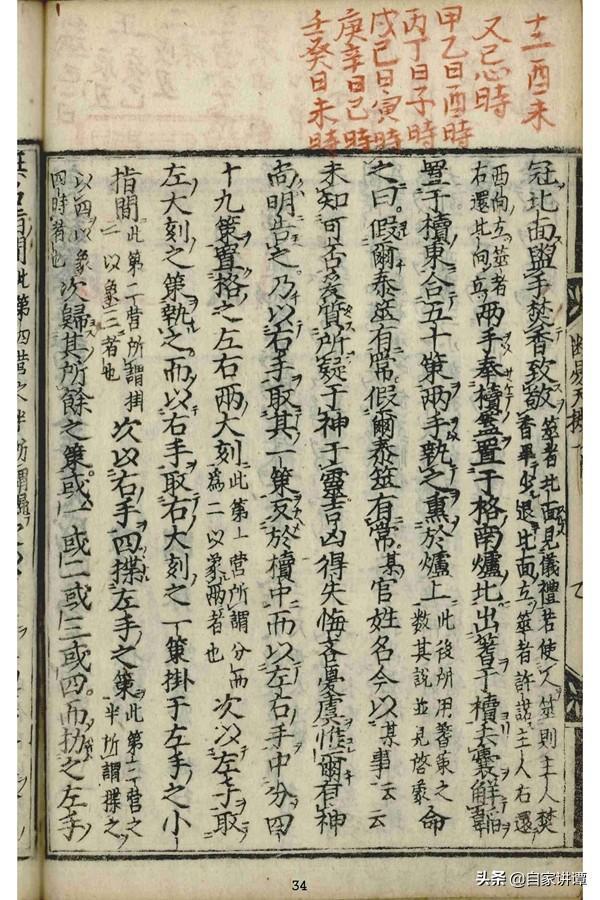 十二酉未
甲乙日酉時
丙丁日子時
戊己日寅時
庚辛日巳時
壬癸日未時
冠北面盥手焚香致敬筮者北面見儀禮若使人筮則主人焚香畢少退北面立筮者許諾主人右還
西向立筮者右還北向立兩手奉櫝蓋置于格南爐北出蓍于櫝去囊解韜
置于櫝東合五十策兩手執之熏於爐上此後所用蓍策之數其說並見啓蒙命
之曰假爾泰筮有常假爾泰筮有常某官姓名今以某事云云
未知可否爰質所疑于神于靈吉凶得失悔吝憂虞惟爾有神
尚明告之乃以右手取其一策反於櫝中而以左右手中分四
十九策置格之左右兩大刻此第一營所謂分而爲二以象兩者也次以左手取
左大刻之策執之而以右手取右大刻之一策掛于左手之小
指間此第二營所謂掛一以象三者也次以右手四揲左手之策此第三營之半所謂揲之
以四以象四時者也次歸其所餘之策或一或二或三或四而扐之左手
34
头条 @自家讲谭